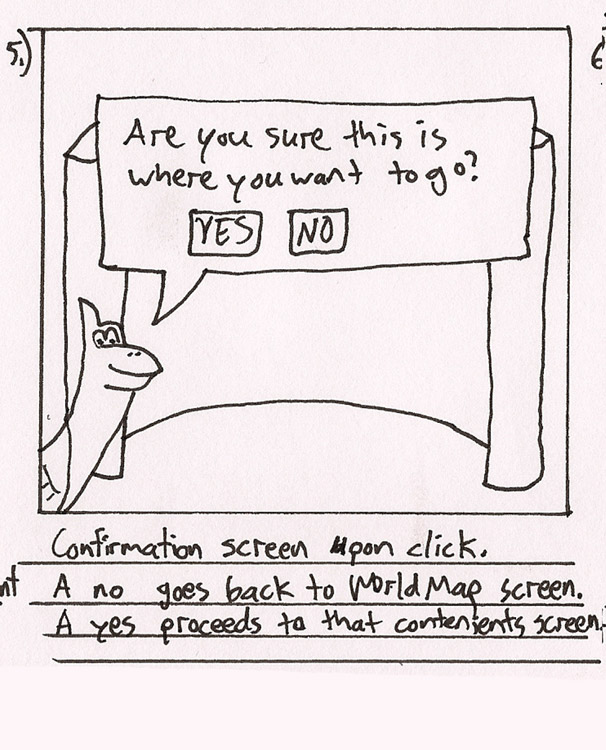 5.)
6
Are you sure this is
where you want to go?
YES NO
Confirmation screen upon click.
nt
A no goes back to World Map screen.
A yes proceeds to that contenients screen.